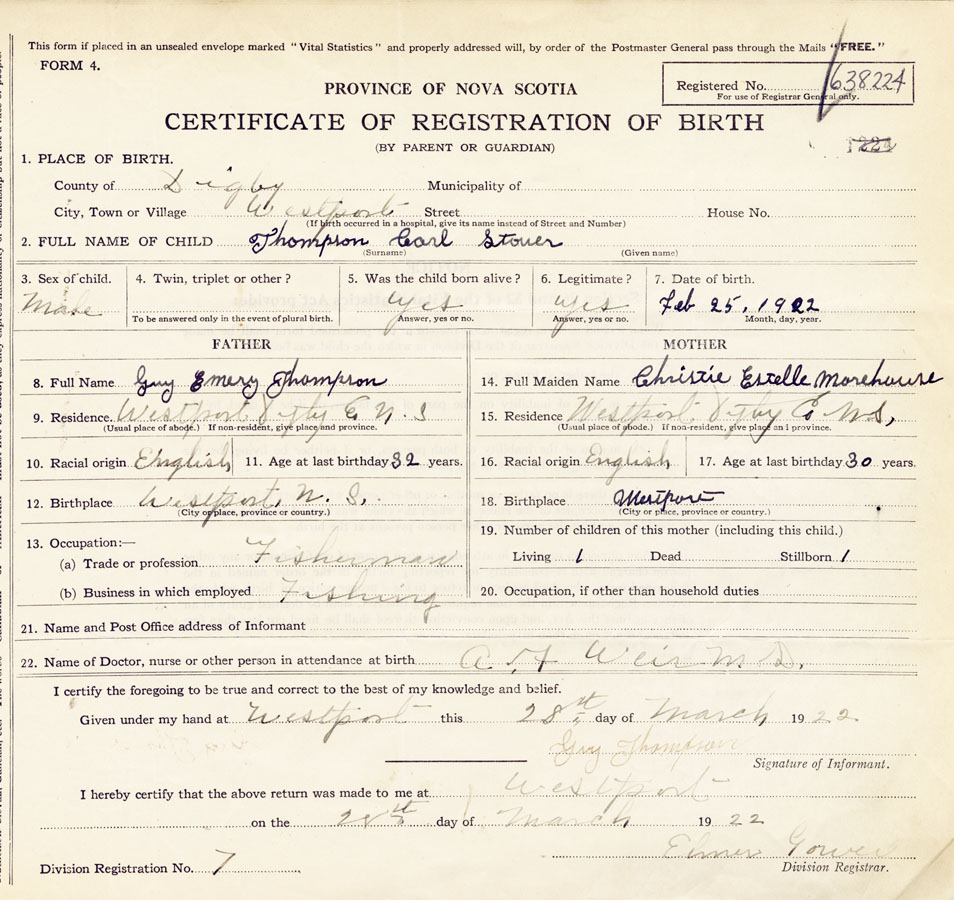 This form if placed in an unsealed envelope marked "Vital Statistics" and properly addressed will, by order of the Postmaster General pass through the Mails "FREE."
FORM 4.
Registered No. 638224
For use of Registrar General only.
PROVINCE OF NOVA SCOTIA
CERTIFICATE OF REGISTRATION OF BIRTH
(BY PARENT OR GUARDIAN)
1. PLACE OF BIRTH.
County of Digby Municipality of
City, Town or Village Westport Street House No.
(If birth occurred in a hospital, give its name instead of Street and Number)
2. FULL NAME OF CHILD Thompson Carl Stover
(Surname) (Given name)
3. Sex of child. 4. Twin, triplet or other? 5. Was the child born alive? 6. Legitimate? 7. Date of birth.
Male yes yes Feb 25, 1922
To be answered only in the event of plural birth. Answer, yes or no. Answer, yes or no. Month, day, year.
FATHER MOTHER
8. Full Name Guy Emery Thompson 14. Full Maiden Name Christie Estelle Morehouse
9. Residence. Westport Digby Co N. S 15. Residence Westport Digby Co N.S,
(Usual place of abode.) If non-resident, give place and province. (Usual place of abode.) If non-resident, give place and province.
10. Racial origin English 11. Age at last birthday 32 years. 16. Racial origin English 17. Age at last birthday 30 years.
12. Birthplace Westport, N. S. 18. Birthplace Westport
(City or place, province or country.) (City or place, province or country.)
13. Occupation:— 19. Number of children of this mother (including this child.)
(a) Trade or profession Fisherman Living 1 Dead Stillborn 1
(b) Business in which employed Fishing 20. Occupation, if other than household duties
21. Name and Post Office address of Informant
22. Name of Doctor, nurse or other person in attendance at birth Weir M.D.
I certify the foregoing to be true and correct to the best of my knowledge and belief.
Given under my hand at Westport this 28th day of March 1922
Guy Thompson
Signature of Informant.
I hereby certify that the above return was made to me at Westport
on the 28th day of March 1922
Elmer
Division Registration No. 7 Division Registrar.